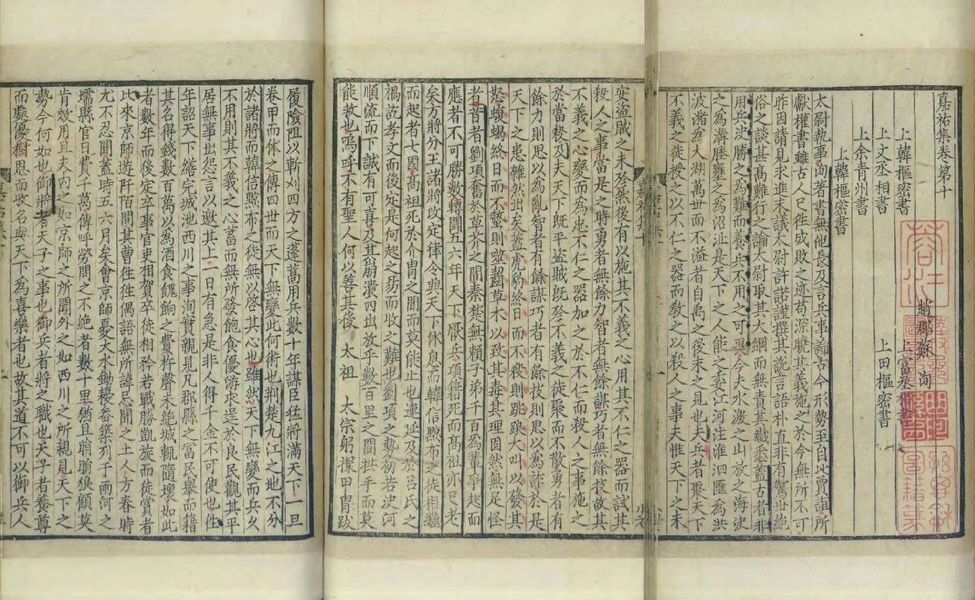 嘉祐集卷第十
趙郡蘇洵
上韓樞密書 上富丞相書
上文丞相書 上田樞密書
上余青州書
上韓樞密書
太尉執事洵著書無他長及言兵事論古今形勢至自比賈誼所
獻權書雖古人已往成敗之迹苟深曉其義施之於今無所不可
昨因請見求進末議太尉許諾謹撰其說言語朴直非有驚世絕
俗之談甚高難行之論太尉取其大綱而無責其纖悉蓋古者非
用兵決勝之為難而養兵不用之可畏今夫水激之山放之海決
之為溝塍壅之為沼沚是天下之人能之委江河注淮泗匯為洪
波瀦為太湖萬世而不溢者自禹之後未之見也夫兵者聚天下
不義之徒授之以不仁之器而教之以殺人之事夫惟天下之未
安盜賊之未殄然後有以施其不義之心用其不仁之器而試其
殺人之事當是之時勇者無餘力智者無餘謀巧者無餘技故其
不義之心變而為忠不仁之器加之於不仁而殺人之事施之
於當殺及夫天下既平盜賊既殄不義之徒聚而不散勇者有
餘力則思以為亂智者有餘謀巧者有餘技則思以為詐於是
天下之患雜然出矣蓋虎豹終日而不殺則跳踉大呌以發其
怒蝮蝎終日而不螫則噬齧草木以致其毒其理固然無足怪
者昔者劉項奮臂於草莽之間秦楚無賴子弟千百為輩爭起而
應者不可勝數轉鬬五六年天下厭兵項籍死而高祖亦已老
矣方將分王諸將改定律令與天下休息而韓信黥布之徒相繼
而起者七國高祖死於介冑之間而莫能止也連延及於呂氏之
禍訖孝文而後定是何起之易而收之難也劉項之勢初若決河
順流而下誠有可喜及其崩潰四出放乎數百里之間拱手而莫
能救也嗚呼不有聖人何以善其後 太祖 太宗躬擐甲冑跋
履險阻以斬刈四方之蓬蒿用兵數十年謀臣猛將滿天下一旦
卷甲而休之傳四世而天下無變此何術也荊楚九江之地不分
於諸將而韓信黥布之徒無以啓其心也雖然天下無變而兵久
不用則其不義之心蓄而無所發飽食優游求逞於良民觀其平
居無事出怨言以邀其上一日有急是非人得千金不可使也往
年詔天下繕完城池西川之事洵實親見凡郡縣之富民舉而籍
其名得錢數百萬以為酒食饋餉之費杵聲未絕城輒隨壞如此
者數年而後定卒事官吏相賀卒徒相矜若戰勝凱旋而徒賞者
比來京師遊阡陌間其曹往往偶語無所諱忌聞之土人方春時
尤不忍聞蓋時五六月矣會京師憂大水鋤耰畚築列于兩河之
壖縣官日費千萬傳呼勞問之不絕者數十里猶且睊睊狼顧莫
肯效用且夫內之如京師之所聞外之如西川之所親見天下之
勢今何如也御將者天子之事也御兵者將之職也天子者養尊
而處優樹恩而收名與天下為喜樂者也故其道不可以御兵人